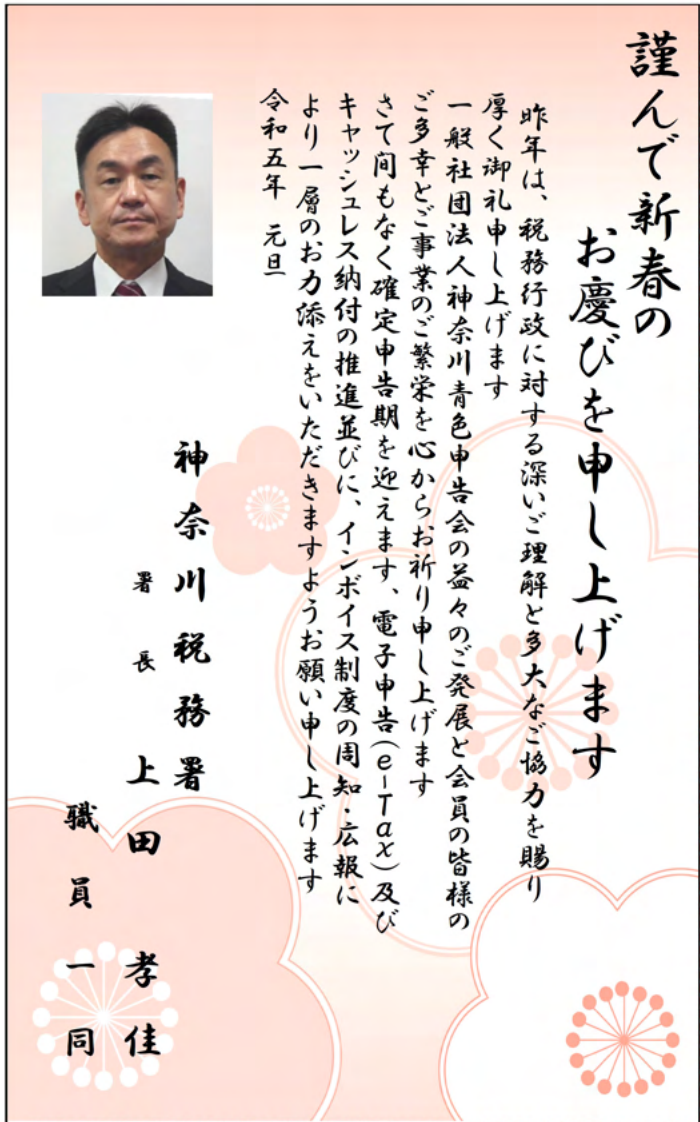 謹んで新春の
お慶びを申し上げます
昨年は、税務行政に対する深いご理解と多大なご協力を賜り
厚く御礼申し上げます
一般社団法人神奈川青色申告会の益々のご発展と会員の皆様の
ご多幸とご事業のご繁栄を心からお祈り申し上げます
さて間もなく確定申告期を迎えます、電子申告(e-Tax)及び
キャッシュレス納付の推進並びに、インボイス制度の周知・広報に
より一層のお力添えをいただきますようお願い申し上げます
令和五年 元旦
神奈川税務署
署長 上田 孝佳
職員一同